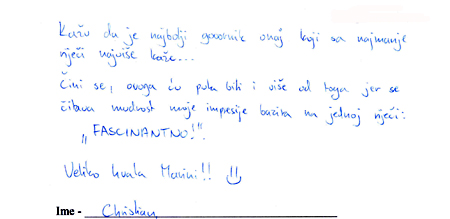 Kažu da je najbolji govornik onaj koji sa najmanje
riječi najviše kaže...
Čini se, ovoga ću puta biti i više od toga jer se
čitava mudrost moje impresije bazira na jednoj riječi:
„FASCINANTNO!".
Veliko hvala Marini!!
Ime - Christian